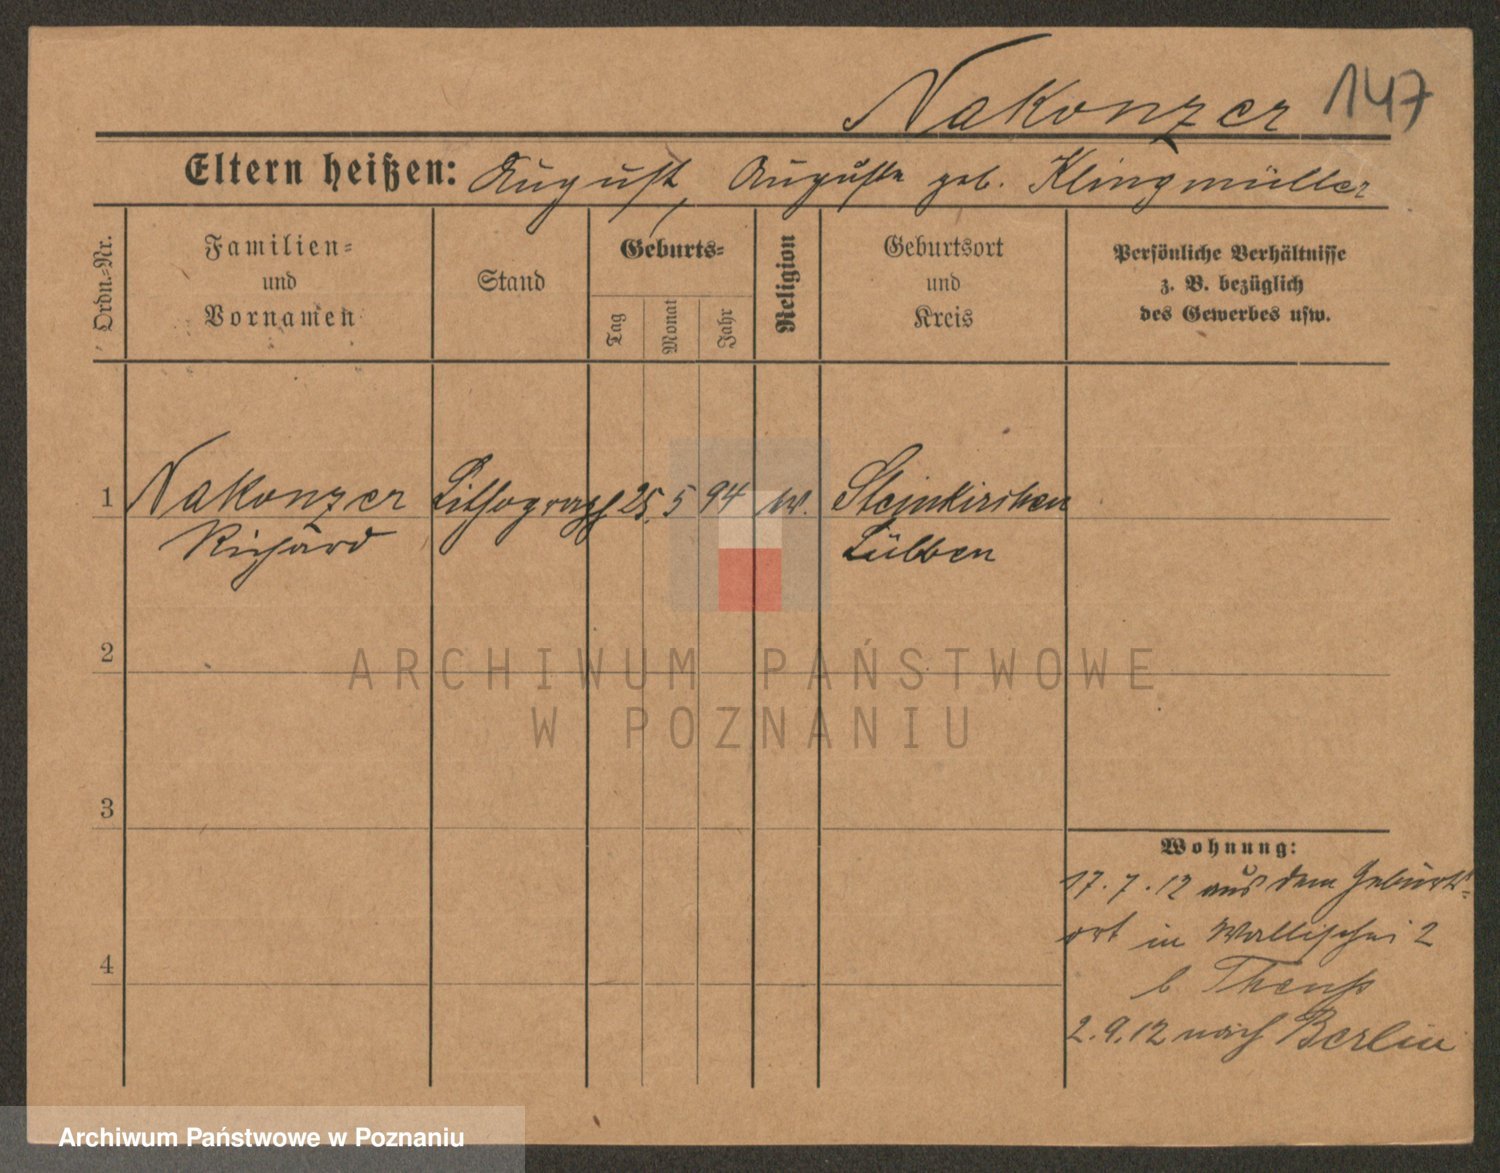 Nakonzer 147
Eltern heißen: August, Auguste geb. Klingmüller
Ordn.-Nr.
Familien-
und
Vornamen
Stand
Geburts-
Tag
Monat
Jahr
Religion
Geburtsort
und
Kreis
Persönliche Verhältnisse
z. B. bezüglich
des Gewerbes usw.
1 Nakonzer Lithograph 25. 5 94 Steinkirchen
Richard Lübben
2
ARCHIWUM PAŃSTWOWE
W POZNANIU
3
Wohnung:
17.7.12 aus dem Geburts-
ort in Wallischei 2
4
b
2.9.12 nach Berlin
Archiwum Państwowe w Poznaniu